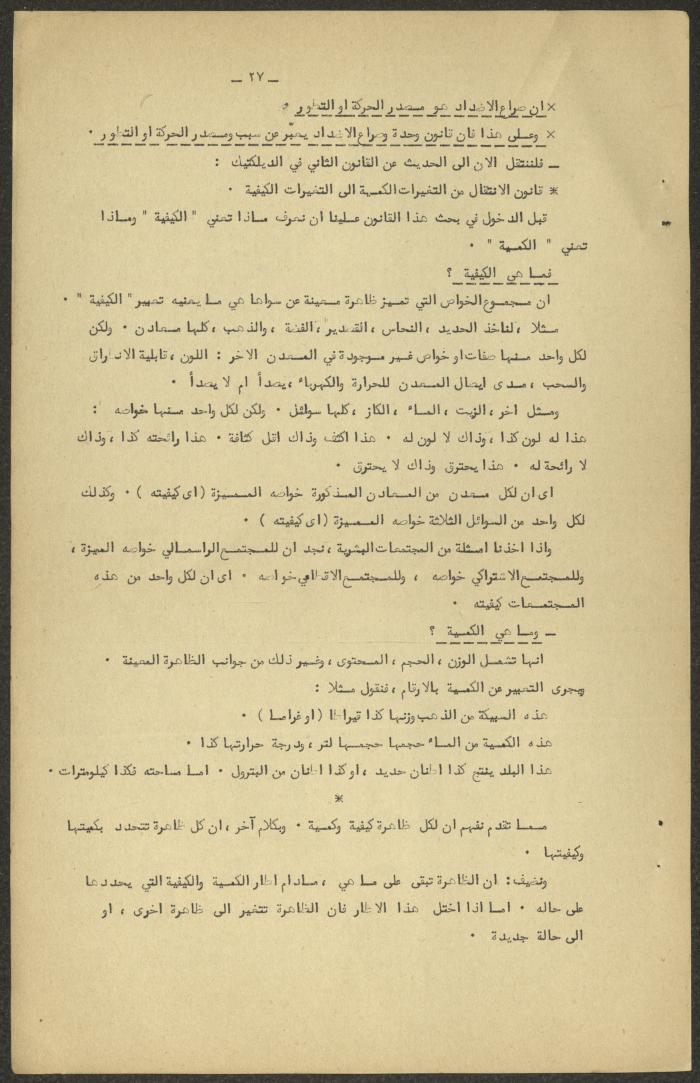 — ٢٧ —
× ان صراع الاضداد هو مصدر الحركة او التطور •
× وعلى هذا فان قانون وحدة وصراع الاضداد يعبّر عن سبب ومصدر الحركة او التطور •
— فلننتقل الان الى الحديث عن القانون الثاني في الديلكتيك :
* قانون الانتقال من التغيرات الكمية الى التغيرات الكيفية •
قبل الدخول في بحث هذا القانون علينا ان نعرف ماذا تعني " الكيفية " وماذا
تعني " الكمية " •
فما هي الكيفية ؟
ان مجموع الخواص التي تميز ظاهرة معينة عن سواها هي ما يعنيه تعبير " الكيفية " •
مثلا ، لناخذ الحديد ، النحاس ، القصدير ، الفضة ، والذهب ، كلها معادن • ولكن
لكل واحد منها صفات او خواص غير موجودة في المعدن الاخر : اللون ، قابلية الانطراق
والسحب ، مدى ايصال المعدن للحرارة والكهرباء ، يصدأ ام لا يصدأ •
ومثل اخر ، الزيت ، الماء ، الكاز ، كلها سوائل • ولكن لكل واحد منها خواصه :
هذا له لون كذا ، وذاك لا لون له • هذا اكثف وذاك اقل كثافة • هذا رائحته كذا ، وذاك
لا رائحة له • هذا يحترق وذاك لا يحترق •
اى ان لكل معدن من المعادن المذكورة خواصه المميزة ( اى كيفيته ) • وكذلك
لكل واحد من السوائل الثلاثة خواصه المميزة ( اى كيفيته ) •
واذا اخذنا امثلة من المجتمعات البشرية ، نجد ان للمجتمع الراسمالي خواصه المميزة ،
وللمجتمع الاشتراكي خواصه ، وللمجتمع الاقطاعي خواصه • اى ان لكل واحد من هذه
المجتمعات كيفيته •
— وما هي الكمية ؟
انها تشمل الوزن ، الحجم ، المحتوى ، وغير ذلك من جوانب الظاهرة المعينة •
ويجرى التعبير عن الكمية بالارقام ، فنقول مثلا :
هذه السبيكة من الذهب وزنها كذا قيراطا ( او غراما ) •
هذه الكمية من الماء حجمها حجمها لتر ، ودرجة حرارتها كذا •
هذا البلد ينتج كذا اطنان حديد ، او كذا اطنان من البترول • اما مساحته فكذا كيلومترات •
*
مما تقدم نفهم ان لكل ظاهرة كيفية وكمية • وبكلام آخر ، ان كل ظاهرة تتحدد بكميتها
وكيفيتها •
ونضيف : ان الظاهرة تبقى على ما هي ، مادام اطار الكمية والكيفية التي يحددها
على حاله • اما اذا اختل هذا الاطار فان الظاهرة تتغير الى ظاهرة اخرى ، او
الى حالة جديدة •